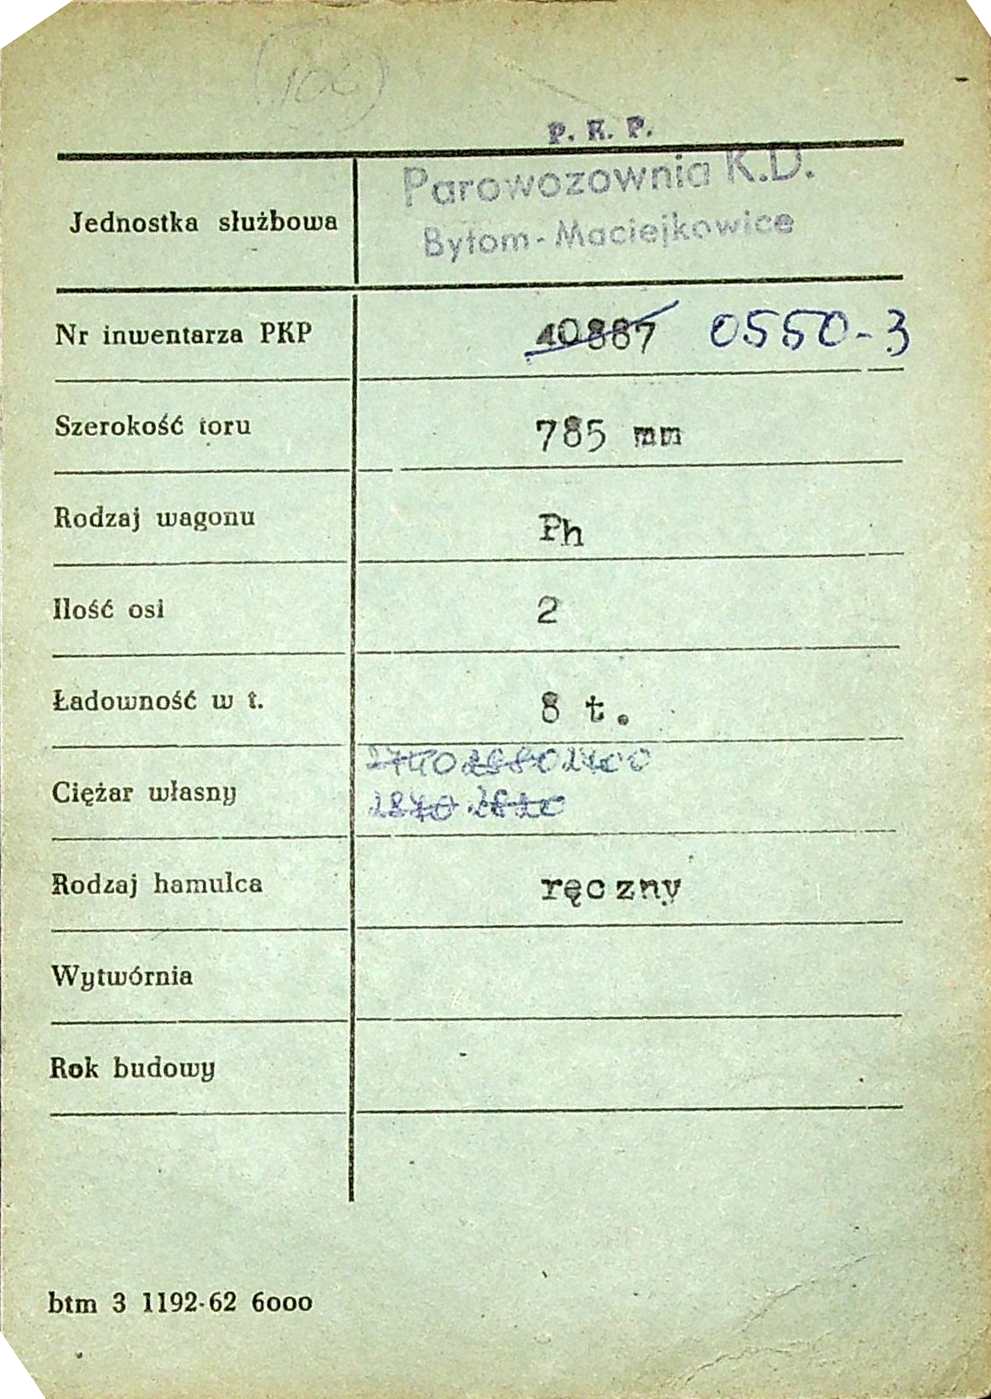 (106)
P. K. P.
Jednostka służbowa Parowozownia K.D.
Bytom-Maciejkowice
Nr inwentarza PKP 40887 0550-3
Szerokość toru 785 mm
Rodzaj wagonu Ph
Ilość osi 2
Ładowność w t. 8 t.
2740 2400
Ciężar własny
2840
Rodzaj hamulca ręczny
Wytwórnia
Rok budowy
btm 3 1192-62 6000